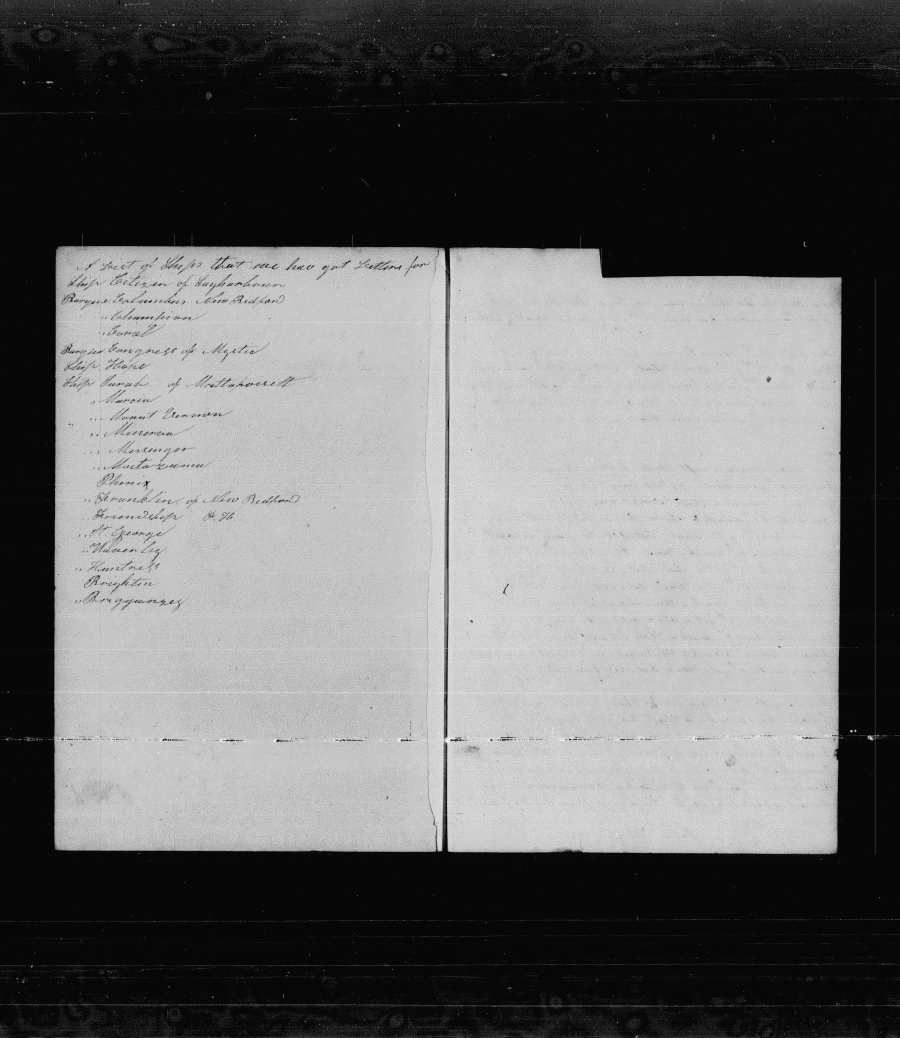 A List of Ships that we hav got Letters for
Ship Citizen of Sagharbour
Barque Columbus New Bedford
" Champion
" Coral
Barque Congress of Mystic
Ship Hope
Ship Sarah of Mattapoisett
" Marcia
" Mount Vernon
" Minerva
" Messenger
" Moctazuma
Phenix
" Franklin of New Bedford
" Friendship F. H.
" St. George
" Waverley
" Huntress
Brighton
" Bragganzes